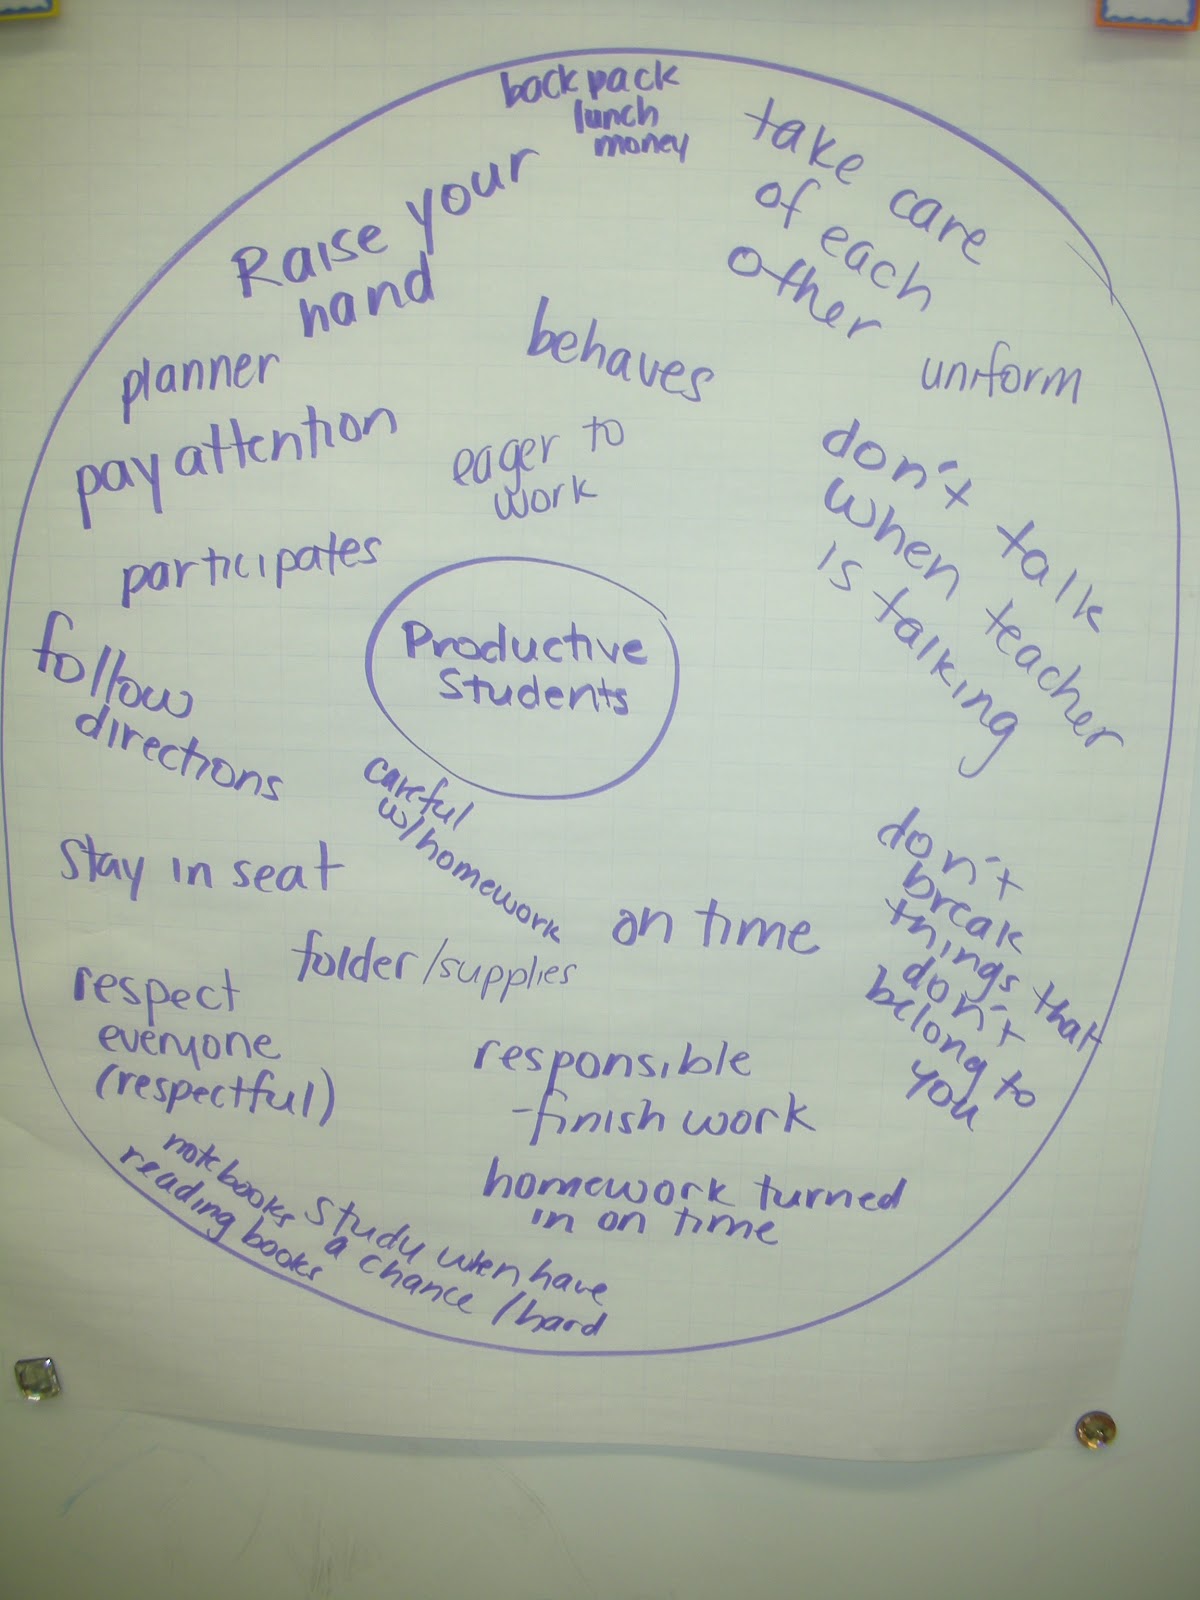 backpack
lunch
money
take care
of each
other
Raise your
hand
behaves
uniform
planner
pay attention
eager to
work
don't talk
when teacher
is talking
participates
Productive
Students
follow
directions
careful
w/homework
stay in seat
on time
don't
break
things that
don't
belong to
you
folder/supplies
respect
everyone
(respectful)
responsible
-finish work
homework turned
in on time
notebooks
reading books
study when have
a chance /hard